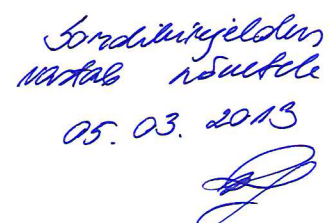 Sordikirjeldus
vastab nõuetele
05.03.2013